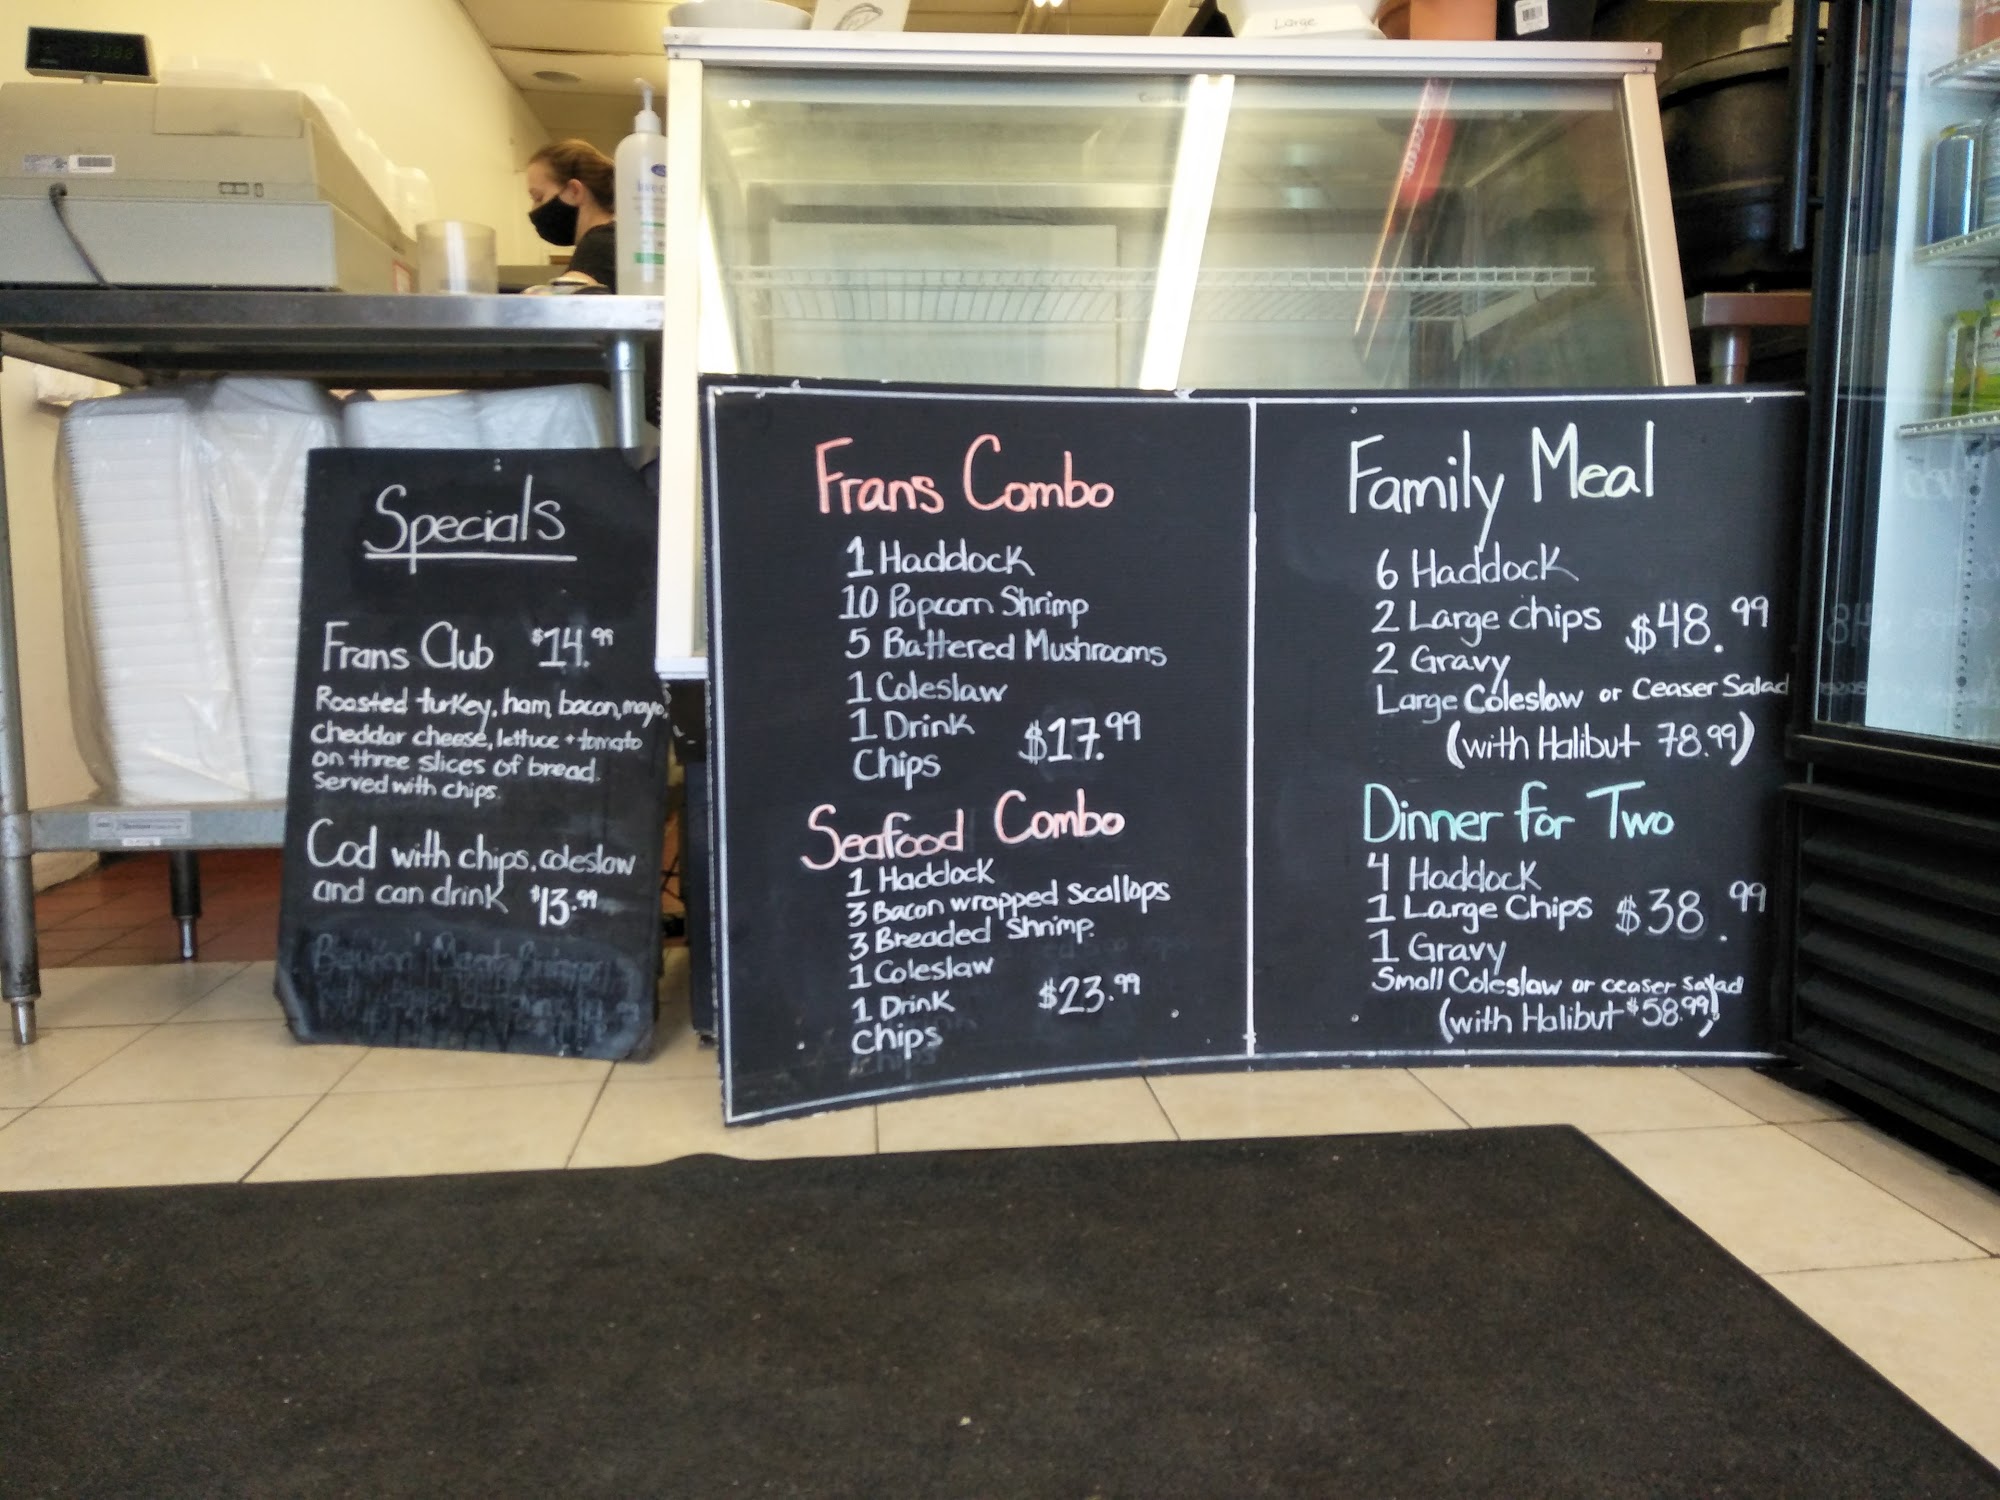 Large
Specials
Frans Club $14.99
Roasted turkey, ham, bacon, mayo,
cheddar cheese, lettuce + tomato
on three slices of bread.
Served with chips.
Cod with chips, coleslaw
and can drink $13.99
Frans Combo
1 Haddock
10 Popcorn Shrimp
5 Battered Mushrooms
1 Coleslaw
1 Drink $17.99
Chips
Seafood Combo
1 Haddock
3 Bacon wrapped scallops
3 Breaded Shrimp.
1 Coleslaw
1 Drink $23.99
Chips
Family Meal
6 Haddock
2 Large chips $48.99
2 Gravy
Large Coleslaw or Ceaser Salad
(with Halibut 78.99)
Dinner for Two
4 Haddock
1 Large Chips $38.99
1 Gravy
Small Coleslaw or ceaser salad
(with Halibut $58.99)